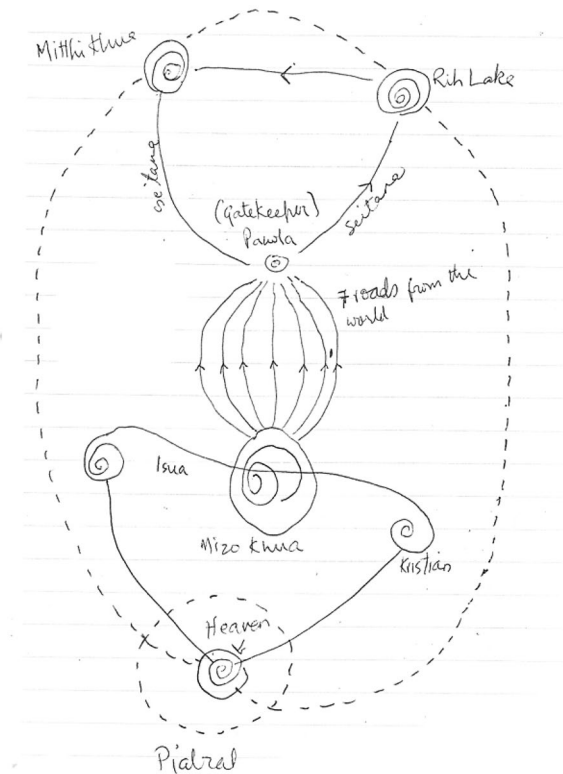 Mitthi Khua
Rih Lake
Seitana
(Gatekeeper)
Pawla
Seitana
7 roads from the
world
Isua
Mizo Khua
Kristian
Heaven
Pialral